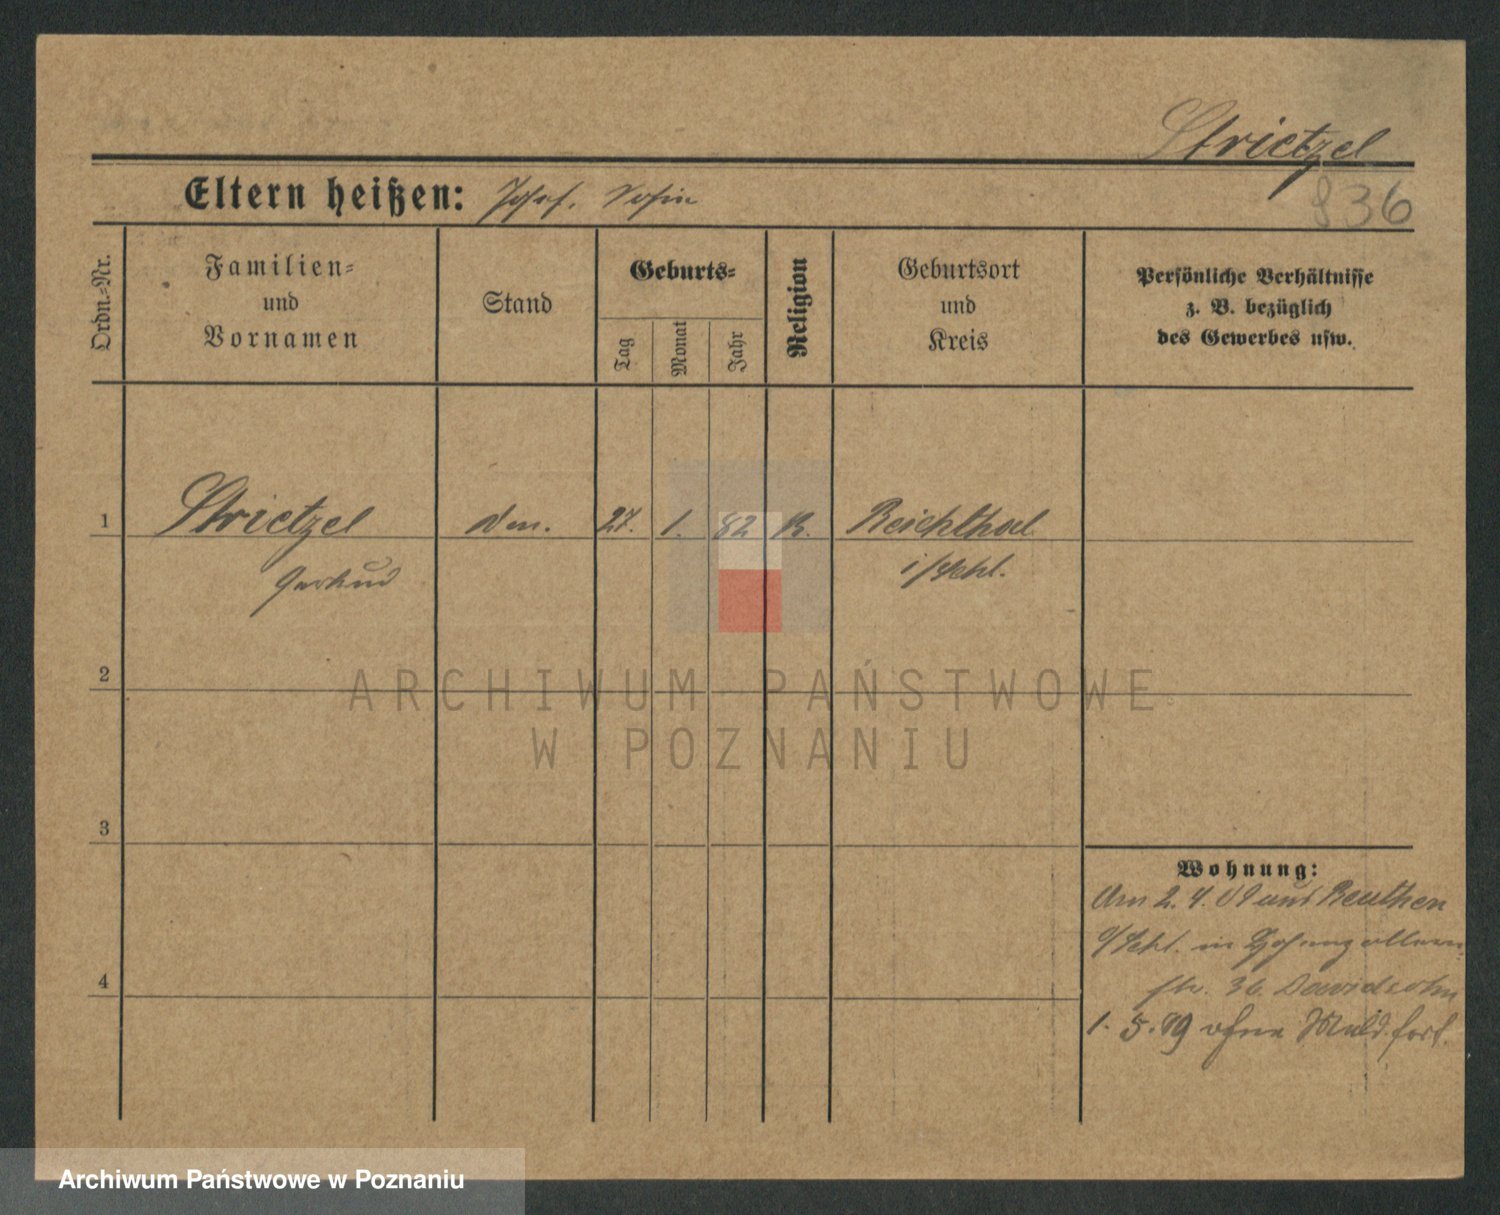 Strietzel
Eltern heißen: Josef.
836
Ordn.-Nr.
Familien-
und
Vornamen
Stand
Geburts-
Tag
Monat
Jahr
Religion
Geburtsort
und
Kreis
Persönliche Verhältnisse
z. B. bezüglich
des Gewerbes usw.
1 Strietzel 27. 1. 82 Reichthal
Gertrud i/Schl.
2
ARCHIWUM PAŃSTWOWE
W POZNANIU
3
Wohnung:
Am 2. 4. 09 aus Beuthen
o/Schl. in Hohenzollern
4
str. 36. Davidsohn
1. 5. 09 ohne Meld. fort.
Archiwum Państwowe w Poznaniu